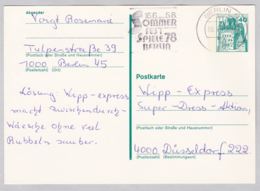 Absender
Voigt Rosemarie
Tulpenstraße 39
(Straße und Hausnummer)
1000 Berlin 45
(Postleitzahl) (Ort)
Lösung: Wipp-express
macht zwischendurch-
Wäsche ohne viel
Rubbeln sauber.
16.6.-6.8.
SOMMER
FEST
SPIELE 78
BERLIN
BERLIN
40
Postkarte
Wipp-Express
Super-Dress-Aktion,
(Postfach oder Straße und Hausnummer)
4000 Düsseldorf 222
(Postleitzahl) (Bestimmungsort)